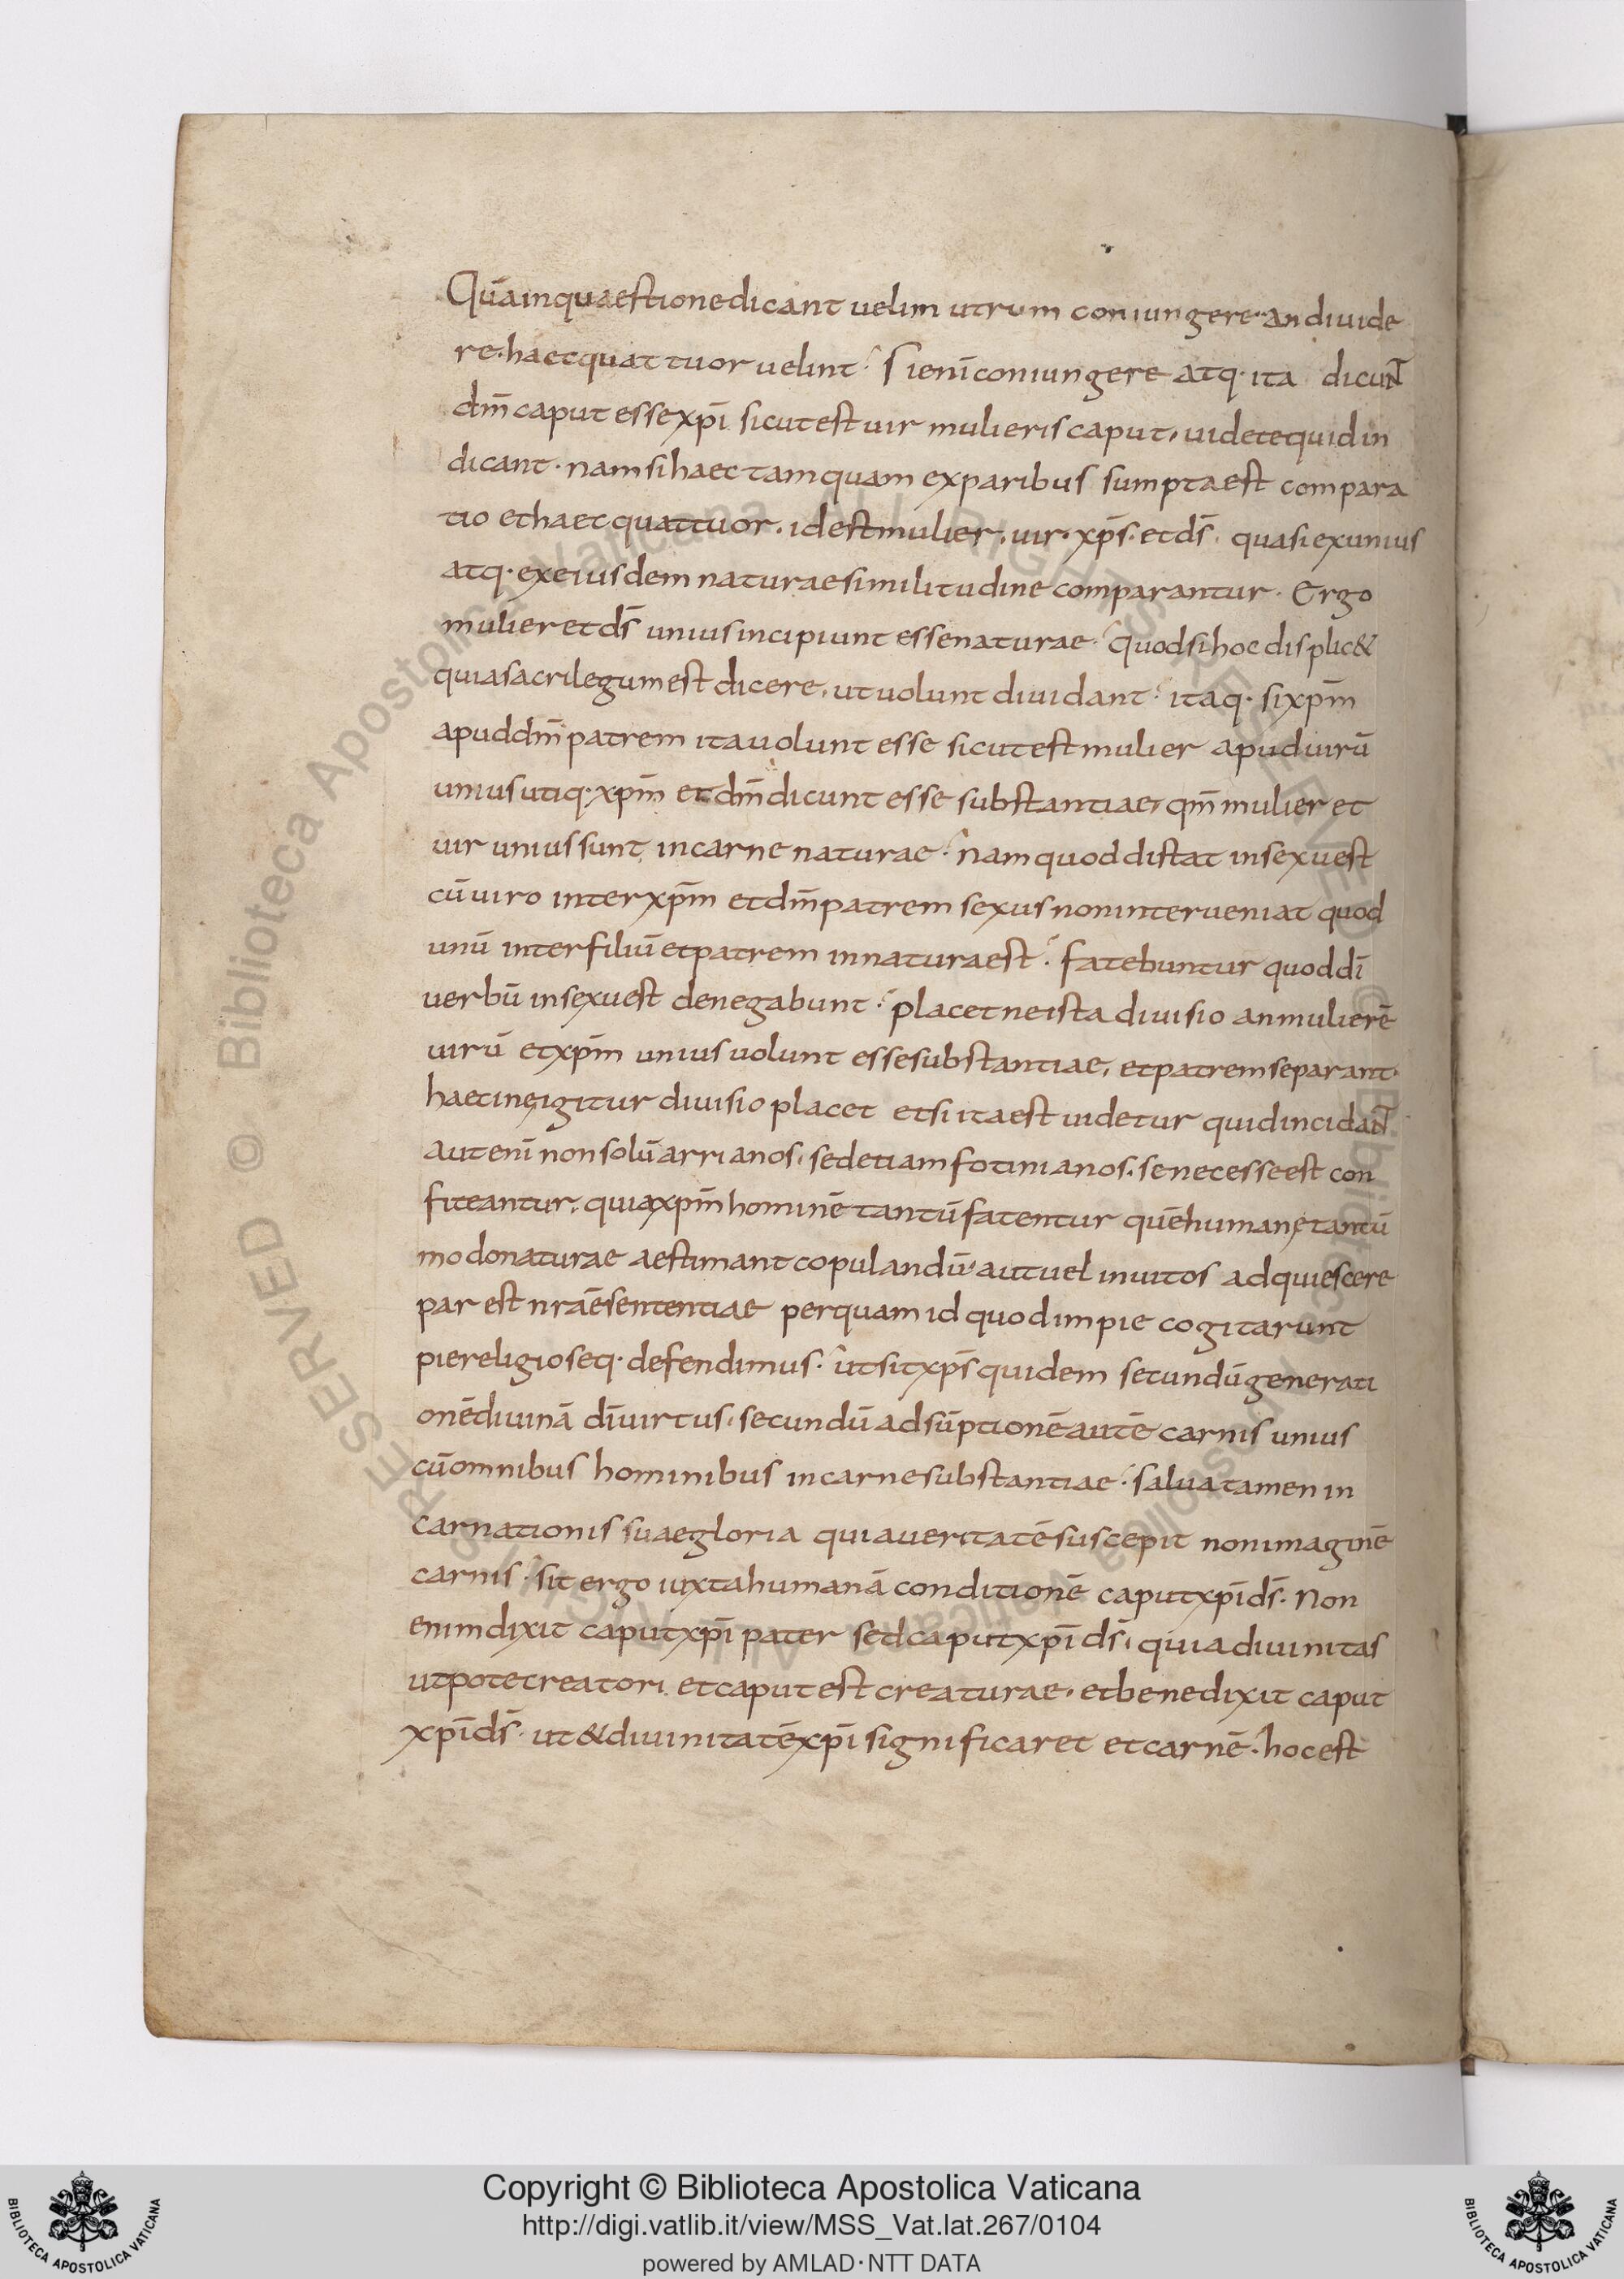 Quā inquaestione dicant uelim utrum coniungere an diuide
re haec quattuor uelint. Si enī coniungere atq· ita dicunt
dm̄ caput esse xp̄i sicut est uir mulieris caput, uidete quid in
dicant. nam si haec tamquam ex paribus sumpta est compara
tio et haec quattuor. id est mulier. uir. xp̄s. et ds̄. quasi ex unius
atq· ex eiusdem naturae similitudine comparantur. Ergo
mulier et ds̄ unius incipiunt esse naturae. Quod si hoc displic&
quia sacrilegum est dicere, ut uolunt diuidant. itaq· si xp̄m
apud dm̄ patrem ita uolunt esse sicut est mulier apud uirū
unius utiq· xp̄m et dm̄ dicunt esse substantiae, qm̄ mulier et
uir unius sunt in carne naturae. Nam quod distat in sexu est
cū uiro inter xp̄m et dm̄ patrem sexus non interueniat quod
unū inter filiū et patrem in natura est. fatebuntur quod dī
uerbū in sexu est denegabunt. placet ne ista diuisio an mulierē
uirū et xp̄m unius uolunt esse substantiae, et patrem separant.
haec inę igitur diuisio placet et si ita est uidetur quid incidant
aut enī non solū arrianos, sed etiam fotinianos. se necesse est con
fiteantur, quia xp̄m hominē tantū fatentur quē humanę tantū
modo naturae aestimant copulandū aut uel inuitos adquiescere
par est nrāe sententiae per quam id quod impie cogitarunt
pie religioseq· defendimus. ut sit xp̄s quidem secundū generati
onē diuinā dī uirtus, secundū adsūptionē autē carnis unius
cū omnibus hominibus in carne substantiae. salua tamen in
carnationis suae gloria quia ueritatē suscepit non imaginē
carnis. sit ergo iuxta humanā conditionē caput xp̄i ds̄. Non
enim dixit caput xp̄i pater sed caput xp̄i ds̄, quia diuinitas
utpote creatori et caput est creaturae. et bene dixit caput
xp̄i ds̄. ut & diuinitatē xp̄i significaret et carnē. hoc est
Copyright © Biblioteca Apostolica Vaticana
http://digi.vatlib.it/view/MSS_Vat.lat.267/0104
powered by AMLAD · NTT DATA
BIBLIOTECA APOSTOLICA VATICANA
BIBLIOTECA APOSTOLICA VATICANA